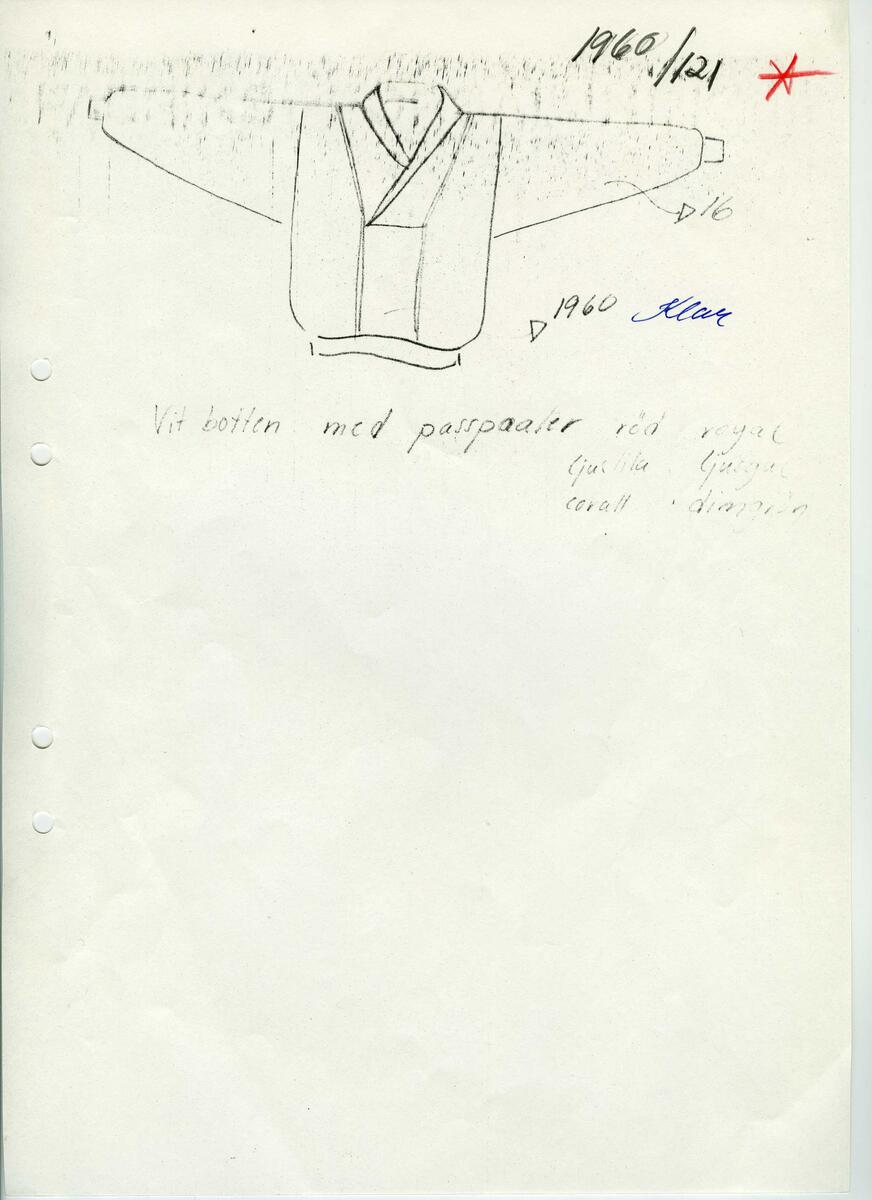 1960/121
16
1960 Klar
Vit botten med passpoaler röd royal
ljuslila ljusgul
corall dimgrön